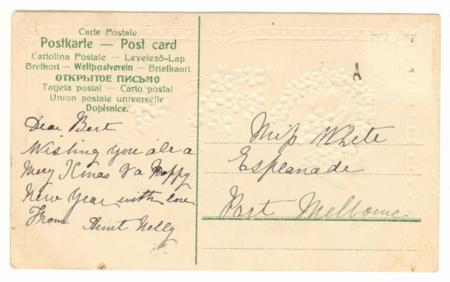 Carte Postale
Postkarte — Post card
Cartolina Postale — Levelező-Lap
Brefkort — Weltpostverein — Briefkaart
ОТКРЫТОЕ ПИСЬМО
Tarjeta postal — Carto postal
Union postale universelle
Dopisnice.
Dear Bert
Wishing you all a
Mery Xmas & a Happy
New Year with love
From Aunt Nelly
Miss White
Esplanade
Port Melbourne